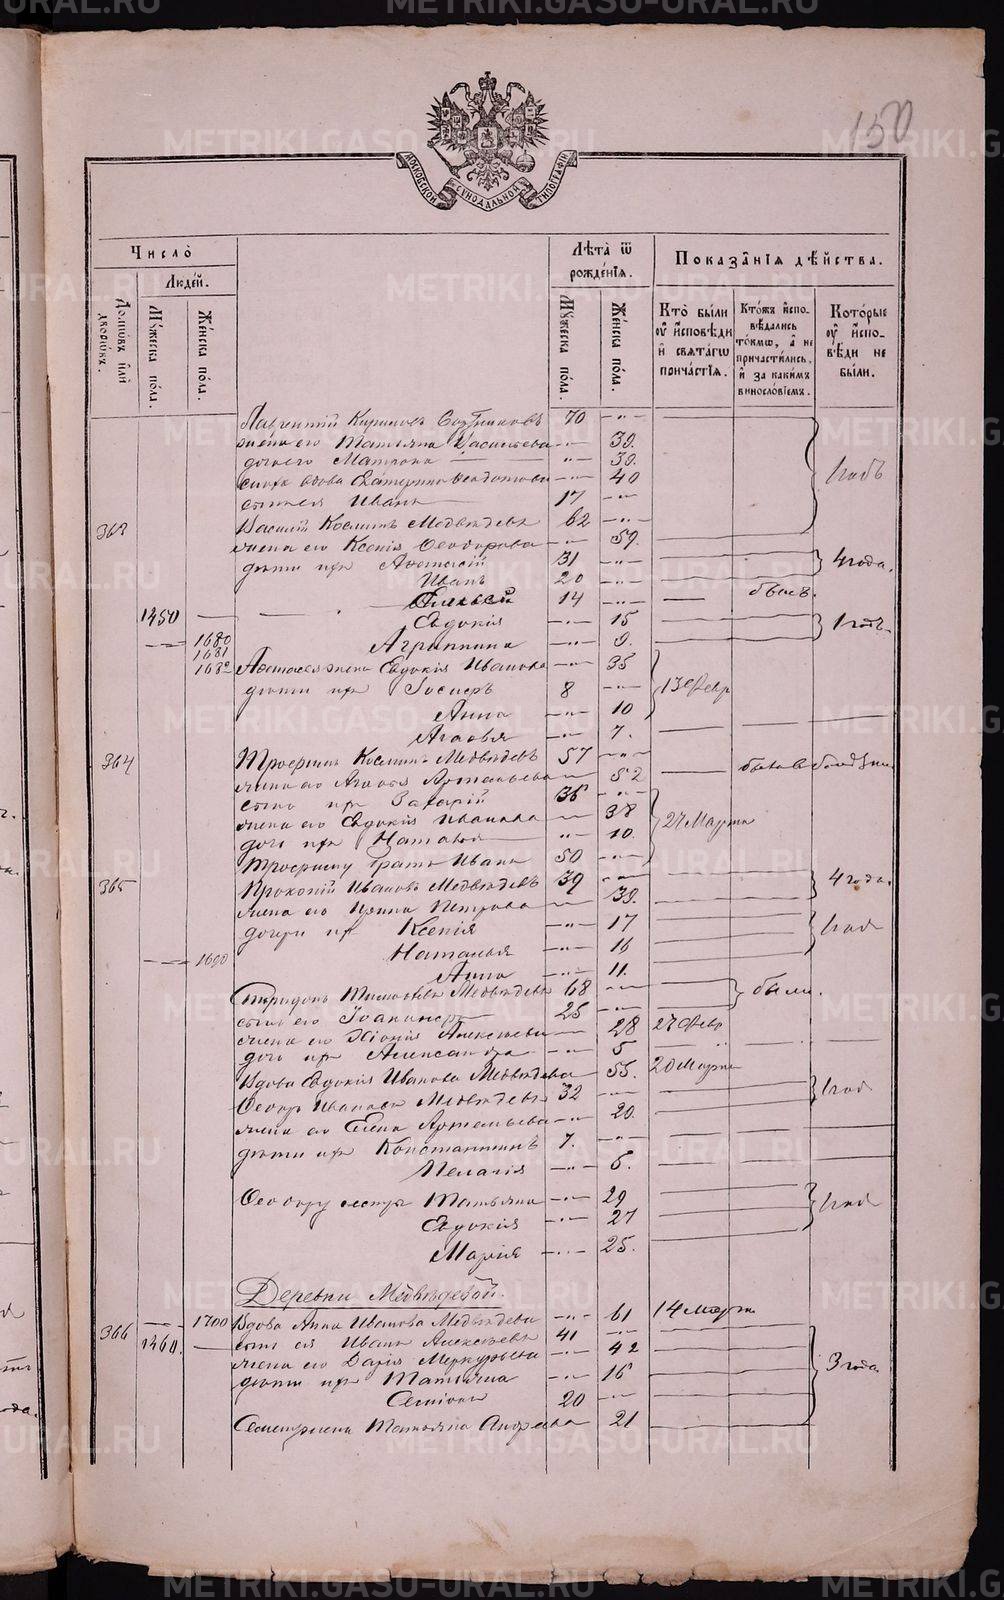 150
МОСКОВСКОЙ СѴНОДАЛЬНОЙ ТИПОГРАФІИ
Число̀
Людей.
Домѡвъ или дворѡвъ.
Мꙋжеска пола.
Женска пола.
Лѣта̀ ѿ рожденїѧ.
Мꙋжеска пола.
Женска пола.
Показанїѧ дѣйства.
Кто̀ были ᲂу҆ исповѣди и҆ свѧтагѡ причастїѧ.
Ктожъ исповѣдались токмѡ, а҆ не причастились, и҆ за какимъ винословїемъ.
Которые ᲂу҆ исповѣди не были.
Лаврентій Кириловъ 70 -"-
жена его Татьяна Васильева -"- 39.
дочь его Матрона -"- 39.
сноха вдова Екатерина 40 1 годъ
сынъ ея Иванъ 17 -"-
363 Василій Козминъ Медвѣдевъ 62 -"-
жена его Ксенія Ѳеодорова -"- 59.
дѣти ихъ Аѳанасій 31 -"- 4 года.
Иванъ 20 -"-
1450 Алексѣй 14 -"- былъ.
Евдокія -"- 15 1 годъ
1680 Агрипина -"- 9.
1681
1682 Аѳанасья жена Евдокія Иванова -"- 35
дѣти ихъ Іосифъ 8 -"- 13 Февр
Анна -"- 10
Агаѳья -"- 7.
364 Трофимъ Козминъ Медвѣдевъ 57 -"-
жена его Агаѳья Артемьева -"- 52
сынъ ихъ Захарій 36 -"-
жена его Евдокія Иванова -"- 38 27 Марта
дочь ихъ Наталья -"- 10.
Трофиму братъ Иванъ 50 -"-
365 Прокопій Ивановъ Медвѣдевъ 39 -"- 4 года.
жена его Ирина Петрова -"- 39.
дочери ихъ Ксенія -"- 17 1 год
1690 Наталья -"- 16
Анна -"- 11.
Спиридонъ Тимофѣевъ Медвѣдевъ 68 -"- были.
сынъ его Іоакимъ 25 -"-
жена его Хіонія Алексѣева -"- 28 27 Февр
дочь ихъ Александра -"- 5
Вдова Евдокія Иванова Медвѣдева -"- 55. 20 Марта
Ѳеодоръ Ивановъ Медвѣдевъ 32 -"- 1 год
жена его Елена Артемьева -"- 20.
дѣти ихъ Константинъ 7. -"-
Пелагія -"- 6.
Ѳеодору сестры Татьяна -"- 29 1 год
Евдокія -"- 27
Марія -"- 25.
Деревни Медвѣдевой.
366 1700 Вдова Анна Иванова Медвѣдева -"- 61 14 Марта
1460. сынъ ея Иванъ Алексѣевъ 41 -"-
жена его Дарія Меркурьева -"- 42
дѣти ихъ Татьяна -"- 16 3 года
Семіонъ 20 -"-
Семена жена Татьяна Андреева 21
METRIKI.GASO-URAL.RU